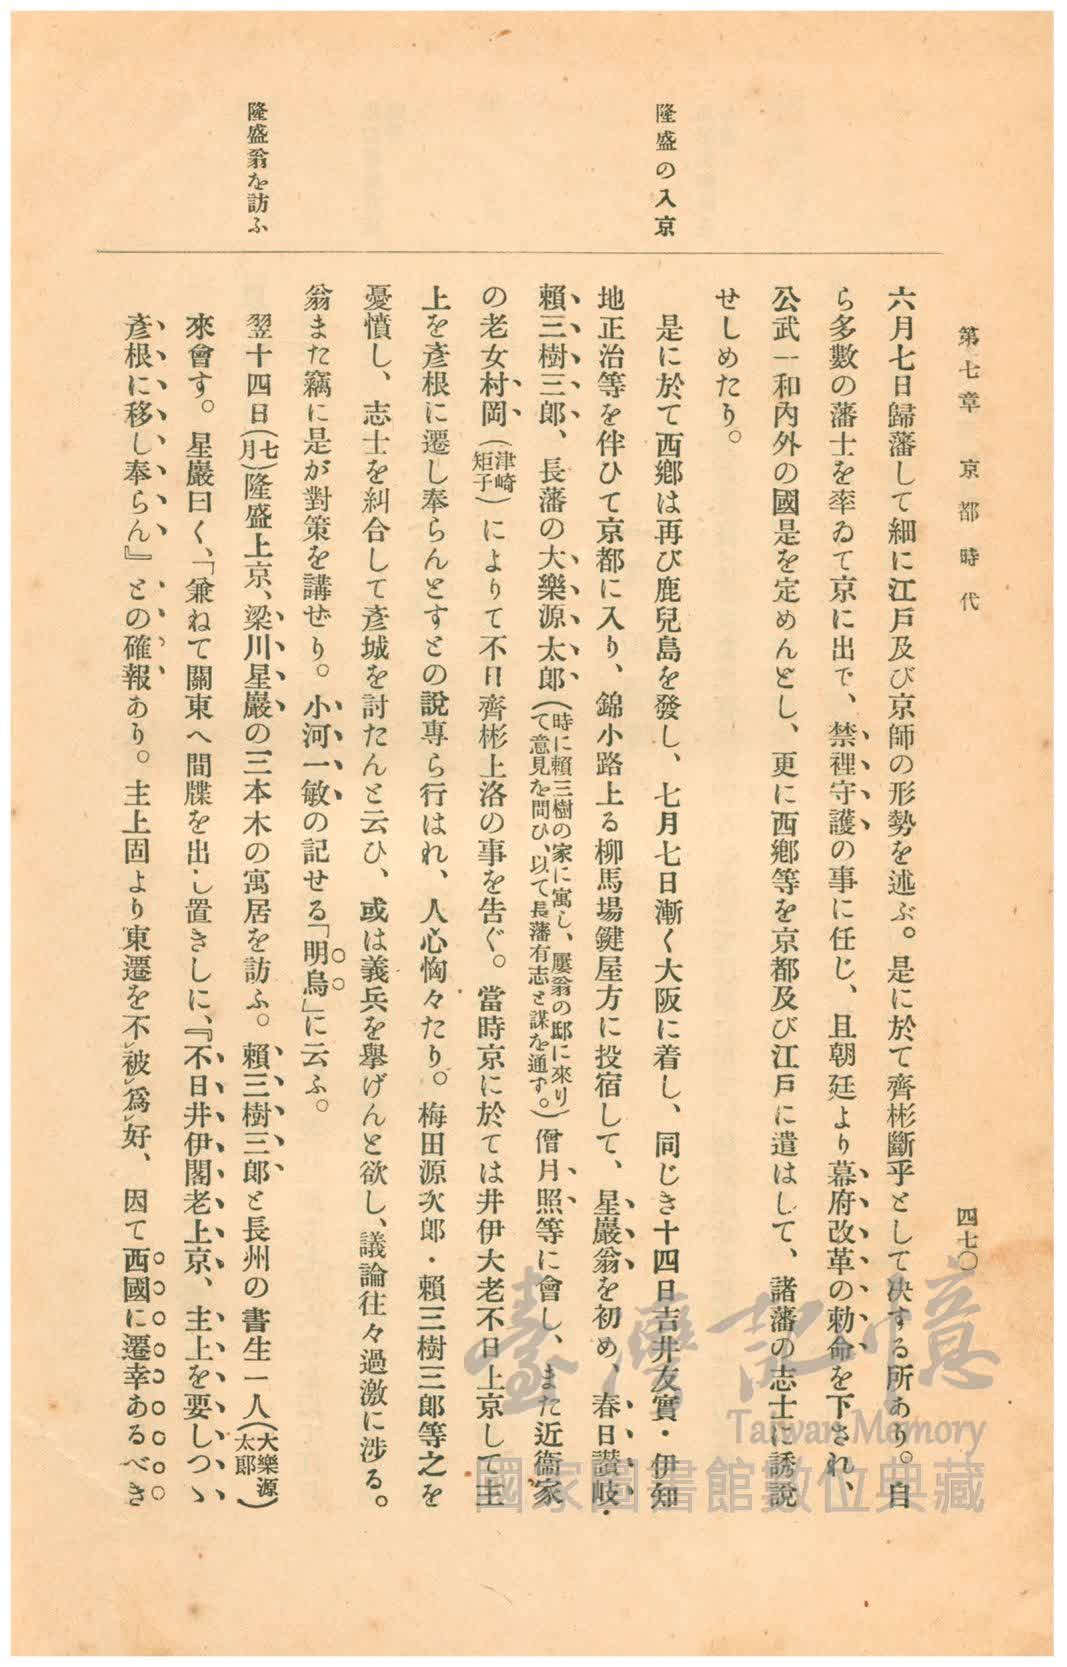 第七章 京都時代 四七〇
六月七日歸藩して細に江戶及び京師の形勢を述ぶ。是に於て齊彬斷乎として決する所あり。自
ら多數の藩士を率ゐて京に出で、禁裡守護の事に任じ、且朝廷より幕府改革の勅命を下され、
公武一和內外の國是を定めんとし、更に西鄕等を京都及び江戶に遣はして、諸藩の志士に誘說
せしめたり。
隆盛の入京
是に於て西鄕は再び鹿兒島を發し、七月七日漸く大阪に着し、同じき十四日吉井友實・伊知
地正治等を伴ひて京都に入り、錦小路上る柳馬場鍵屋方に投宿して、星巖翁を初め、春日讚岐・
賴三樹三郎、長藩の大樂源太郎(時に賴三樹の家に寓し、屢翁の邸に來りて意見を問ひ、以て長藩有志と謀を通ず。)僧月照等に會し、また近衞家
の老女村岡(津崎矩子)によりて不日齊彬上洛の事を吿ぐ。當時京に於ては井伊大老不日上京して主
上を彥根に遷し奉らんとすとの說專ら行はれ、人心恟々たり。梅田源次郎・賴三樹三郎等之を
憂憤し、志士を糾合して彥城を討たんと云ひ、或は義兵を擧げんと欲し、議論往々過激に涉る。
翁また竊に是が對策を講ぜり。小河一敏の記せる「明烏」に云ふ。
隆盛翁を訪ふ
翌十四日(七月)隆盛上京、梁川星巖の三本木の寓居を訪ふ。賴三樹三郎と長州の書生一人(大樂源太郎)
來會す。星巖曰く、「兼ねて關東へ間牒を出し置きしに、『不日井伊閣老上京、主上を要しつゝ
彥根に移し奉らん』との確報あり。主上固より東遷を不レ被レ爲レ好、因て西國に遷幸あるべき
臺灣記憶
Taiwan Memory
國家圖書館數位典藏